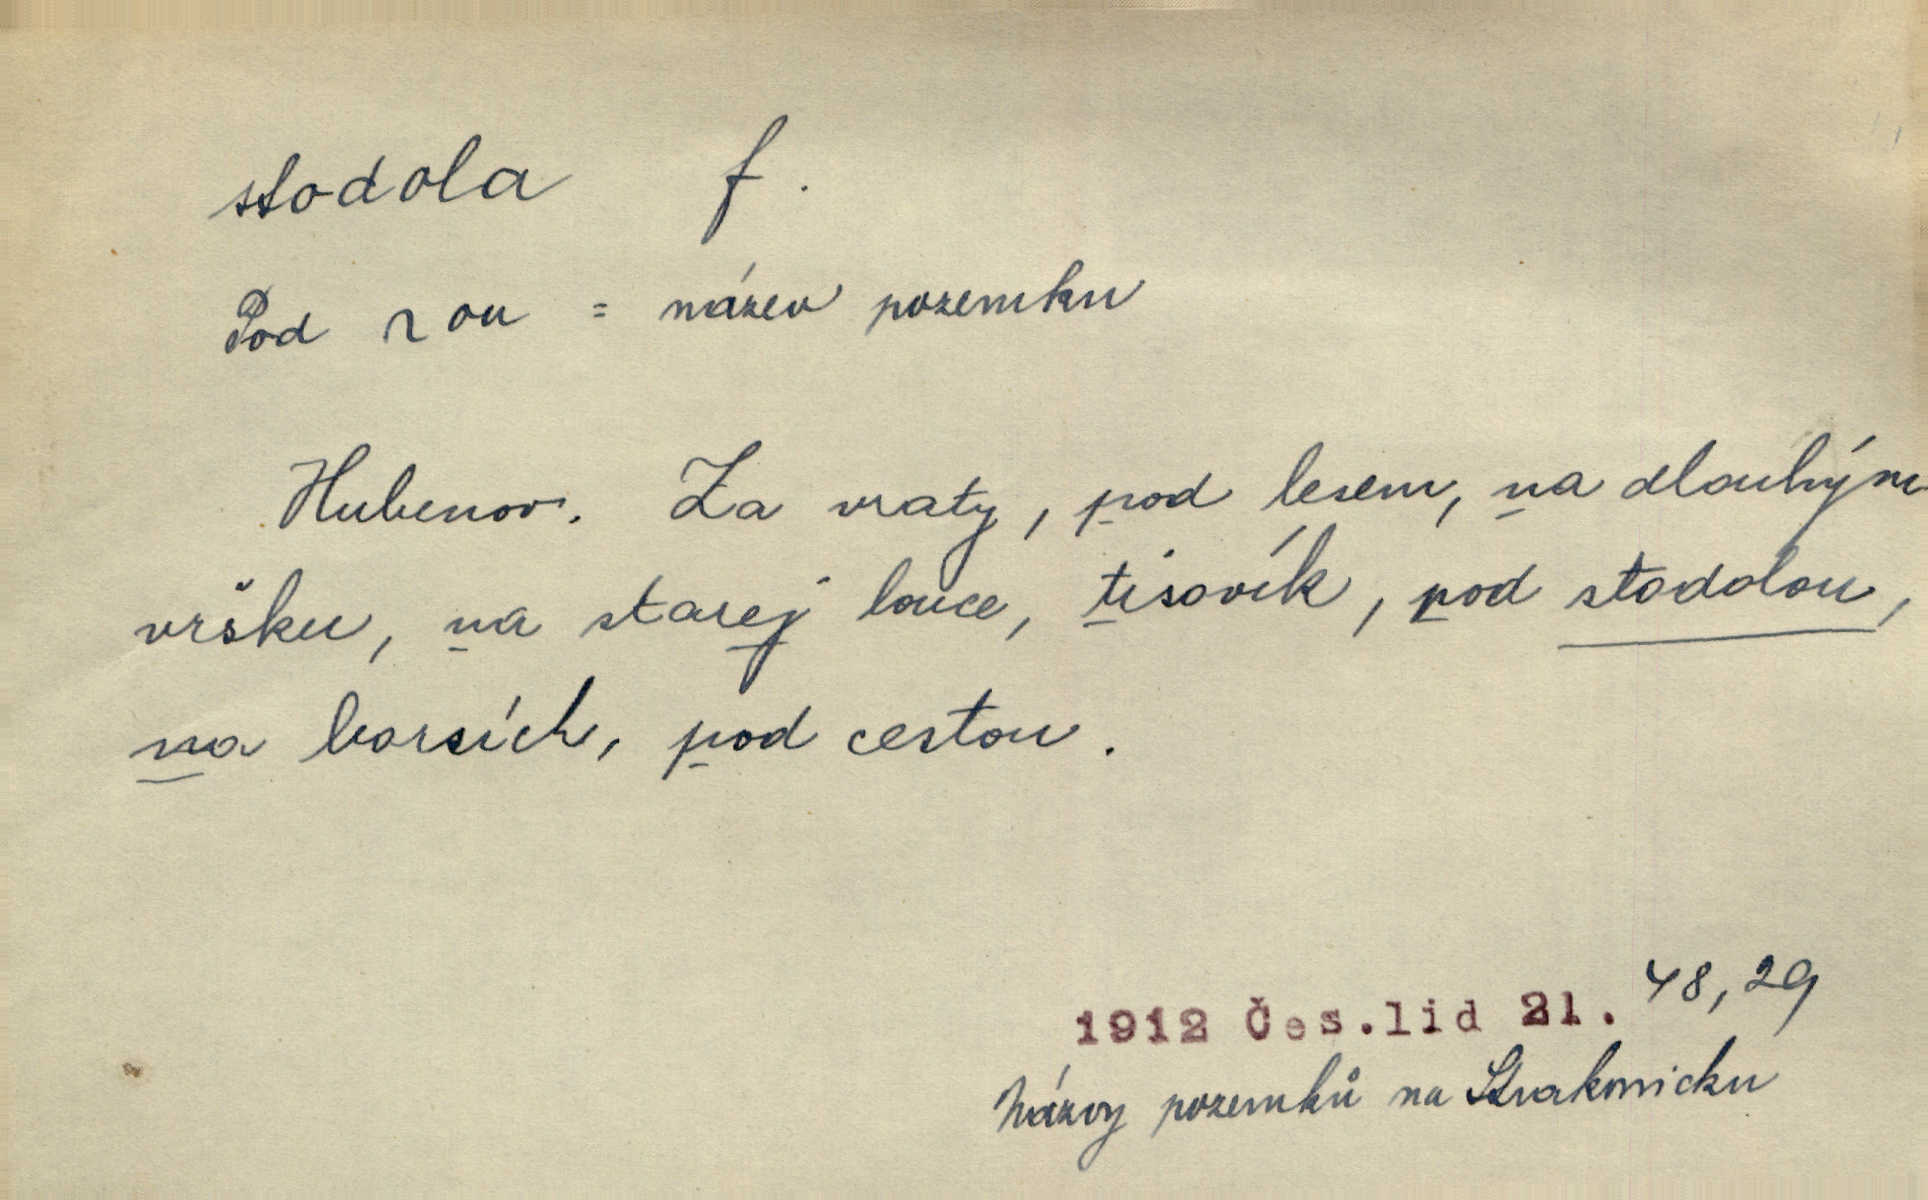 stodola f.
Pod ~ou = název pozemku
Hubenov. Za vraty, pod lesem, na dlouhým
vršku, na starej louce, tisovík, pod stodolou,
na borsích, pod cestou.
48,29
1912 Čes.lid 21.
Názvy pozemků na Strakonicku